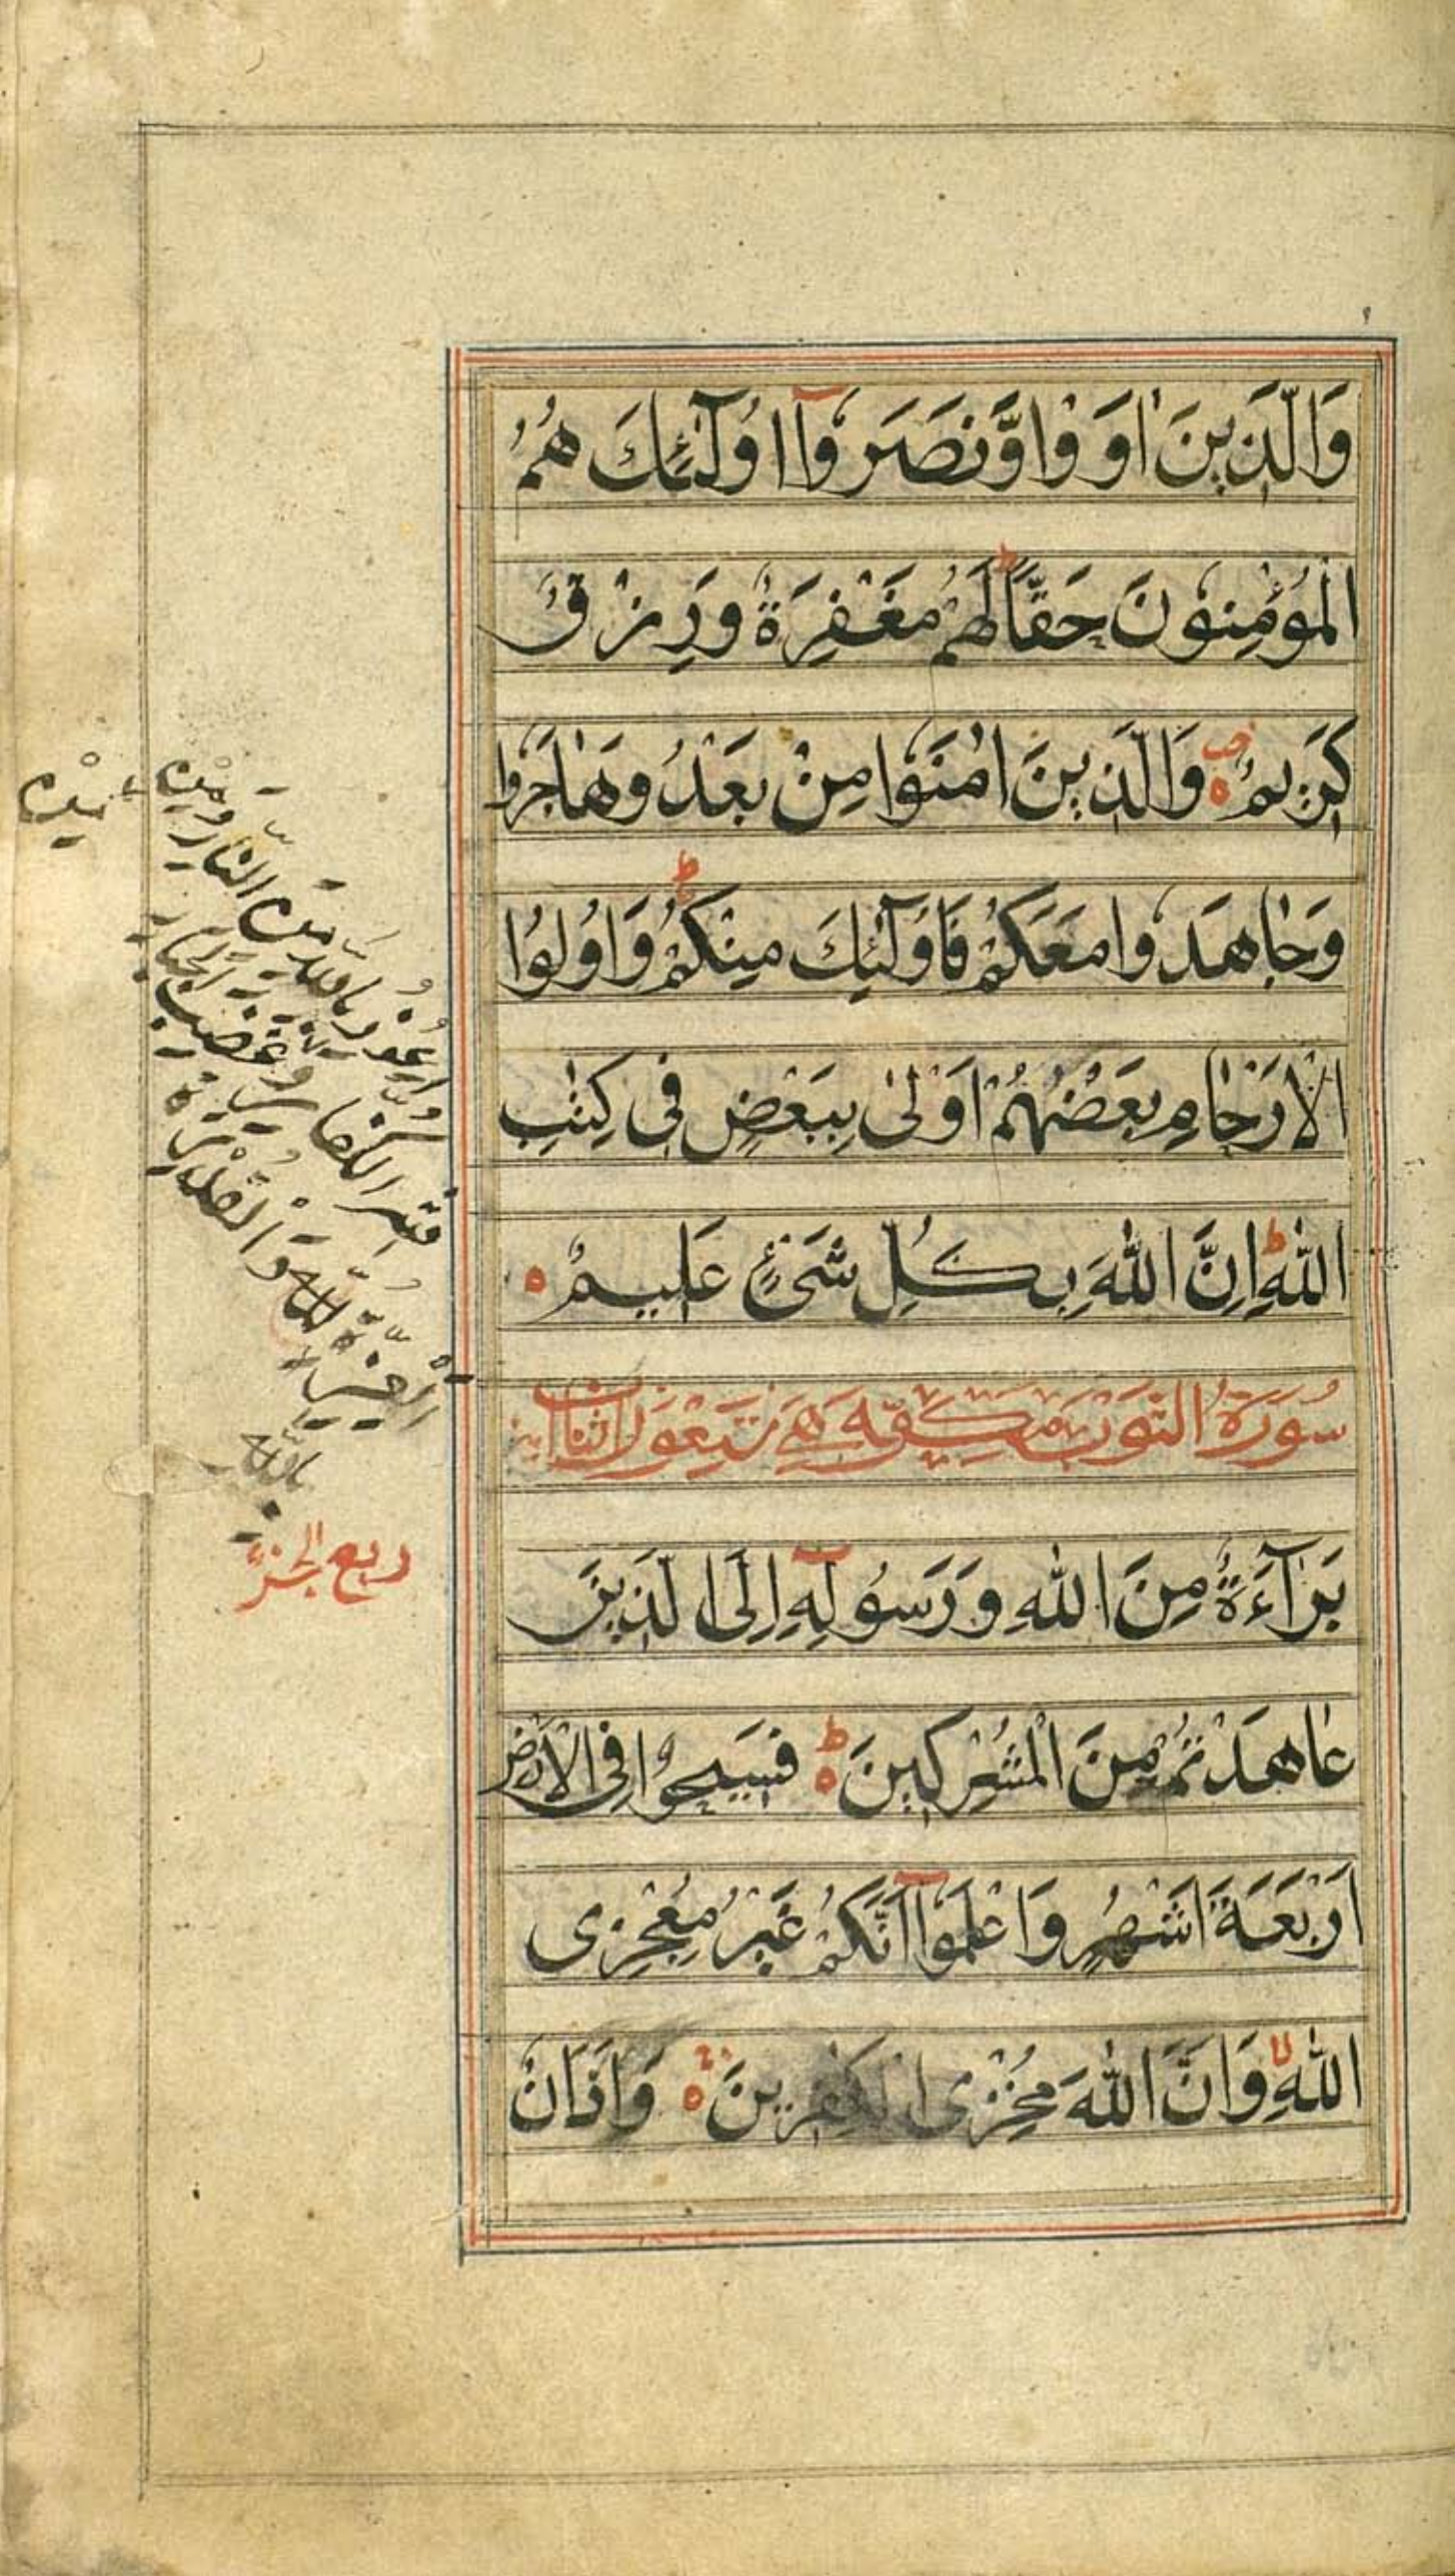 وَالَّذِينَ اٰوَوْا وَّنَصَرُوآ اُولٰٓئِكَ هُمُ
الْمُؤْمِنُونَ حَقًّا ط لَهُمْ مَغْفِرَةٌ وَرِزْقٌ
كَرِيمٌ ه وَالَّذِينَ اٰمَنُوا مِنْ بَعْدُ وَهَاجَرُوا
وَجَاهَدُوا مَعَكُمْ فَاُولٰٓئِكَ مِنْكُمْ ط وَاُولُوا
الْاَرْحَامِ بَعْضُهُمْ اَوْلٰى بِبَعْضٍ فِى كِتٰبِ
اللّٰهِ ط اِنَّ اللّٰهَ بِكُلِّ شَىْءٍ عَلِيمٌ ه
سُورَةُ التوبة
بَرَآءَةٌ مِنَ اللّٰهِ وَرَسُولِهٓ اِلَى الَّذِينَ
عَاهَدْتُمْ مِنَ الْمُشْرِكِينَ ط ه فَسِيحُوا فِى الْاَرْضِ
اَرْبَعَةَ اَشْهُرٍ وَاعْلَمُوآ اَنَّكُمْ غَيْرُ مُعْجِزِى
اللّٰهِ لا وَاَنَّ اللّٰهَ مُخْزِى الْكٰفِرِينَ ه وَاَذَانٌ
اَعُوذُ بِاللّٰهِ مِنَ النَّارِ وَمِنْ
شَرِّ الْكُفَّارِ وَمِنْ غَضَبِ الْجَبَّارِ
اَلْعِزَّةُ لِلّٰهِ وَالْقُدْرَةُ
بِاللّٰهِ
ربع الجزء